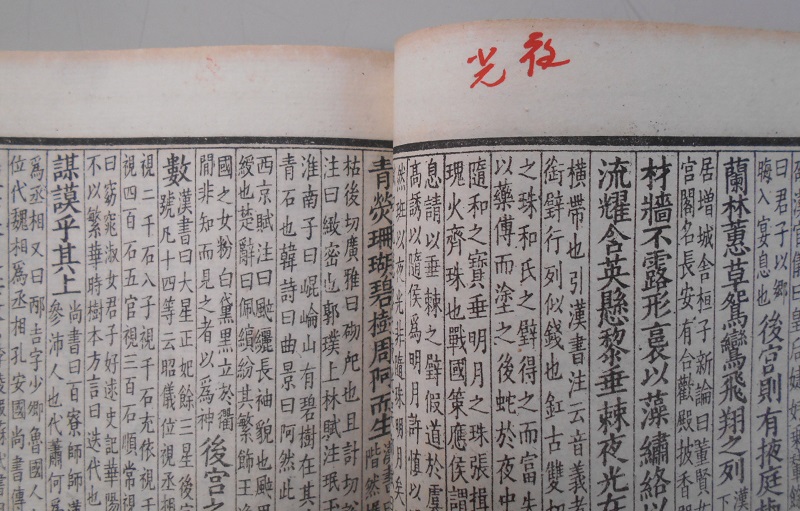 夜光
漢官儀曰皇后
曰君子以嚮
晦入宴息也
後宮則有掖庭
蘭林蕙草鴛鸞飛翔之列
漢
下
居增城舍桓子新論曰董賢女
官閣名長安有合歡殿披香
材牆不露形裛以藻繡絡以
流耀含英懸黎垂棘夜光在
橫帶也引漢書注云音義者
銜璧行列似錢也釭古雙切
之珠和氏之璧得之而富失
以藥傅而塗之後蛇於夜中
隨和之寶垂明月之珠張揖
瑰火齊珠也戰國策應侯謂
息請以垂棘之璧假道於虞
高誘以隨侯爲明月許慎以
然班以夜光非隨珠明月矣
青熒珊瑚碧樹周阿而生
漢書
階然
枯後切廣雅曰砌戺也且計切
注曰緻密也郭璞上林賦注珉玉
淮南子曰崐崘山有碧樹在其
青石也韓詩曰曲景曰阿然此
西京賦注曰颯纚長袖貌也颯
綬也楚辭曰佩繽紛其繁飾王
國之女粉白黛黑立於衢
閒非知而見之者以爲神
後宮之
數
漢書曰大星正妃餘三星後宮
號凡十四等云昭儀位視丞相
視二千石八子視千石充依視千
視四百石五官視三百石順常視
曰窈窕淑女君子好逑史記華陽
不以繁華時樹本方言曰迭代也
謀謨乎其上
尚書曰百寮師師漢
參沛人也代蕭何爲
爲丞相又曰邴吉字少卿魯國人
位代魏相爲丞相孔安國尚書傳